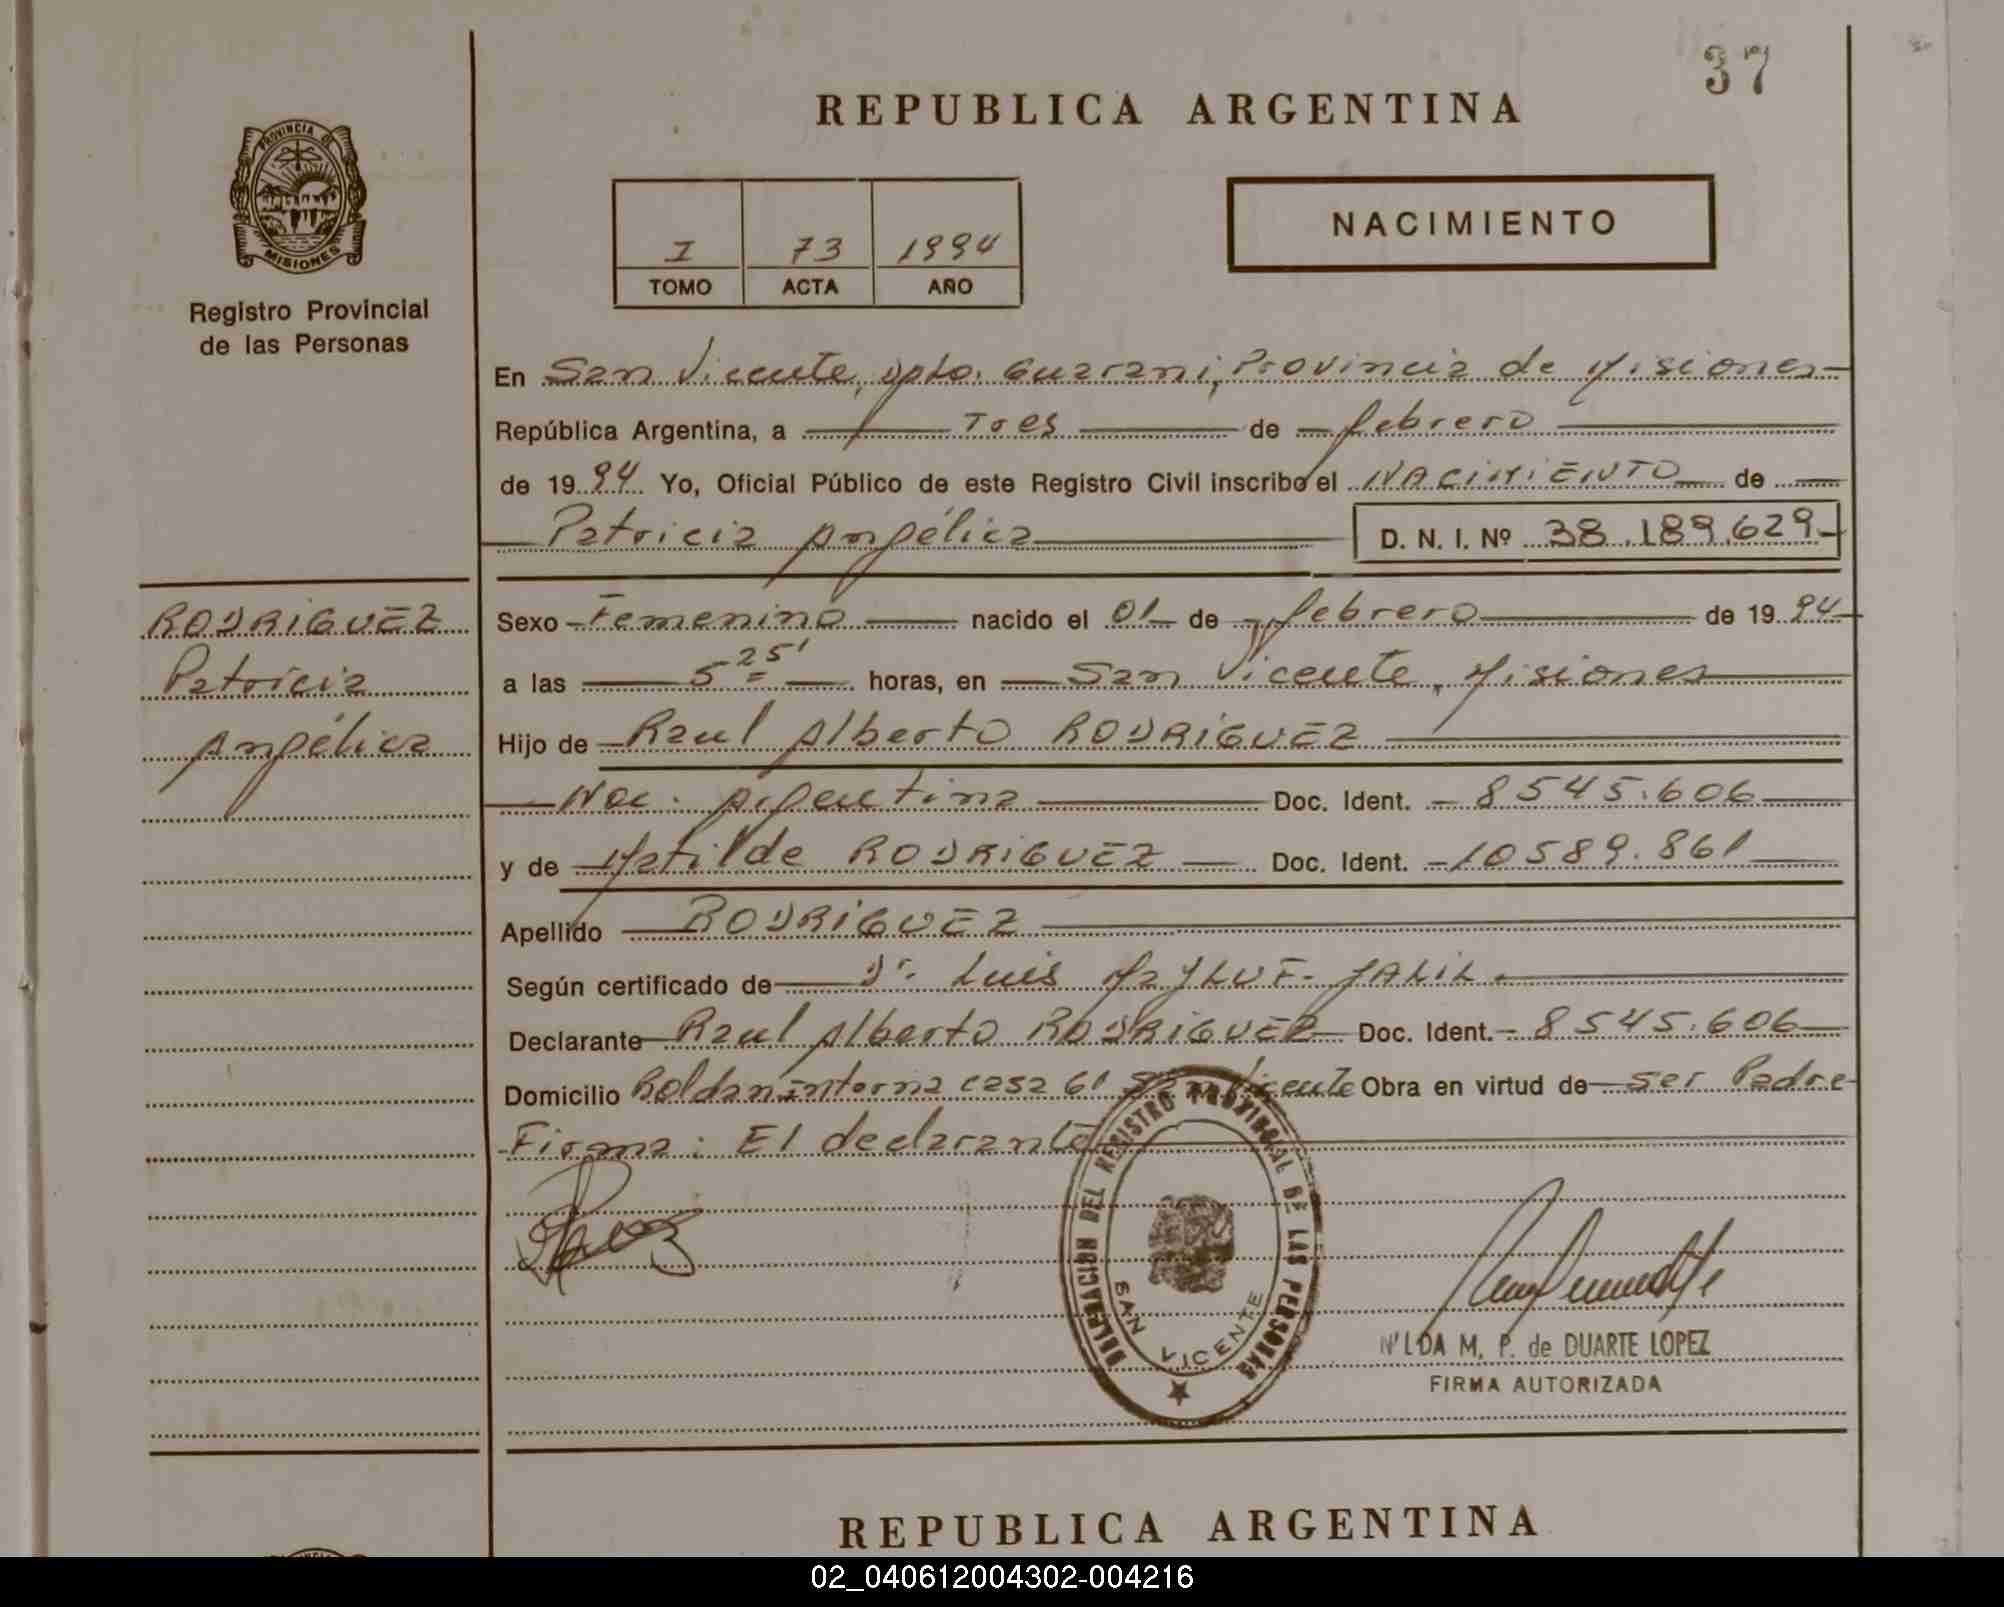 37
REPUBLICA ARGENTINA
PROVINCIA DE
MISIONES
Registro Provincial
de las Personas
NACIMIENTO
I 73 1994
TOMO ACTA AÑO
En San Vicente, Dpto. Guarani, Provincia de Misiones
República Argentina, a Tres de febrero
de 1994 Yo, Oficial Público de este Registro Civil inscribo el NACIMIENTO de
Patricia Angélica D. N. I. Nº 38.189.629
RODRIGUEZ
Patricia
Angélica
Sexo Femenino nacido el 01 de febrero de 1994
a las 5 25' horas, en San Vicente, Misiones
Hijo de Raul Alberto RODRIGUEZ
Nac. Argentina Doc. Ident. 8545.606
y de Matilde RODRIGUEZ Doc. Ident. 10589.861
Apellido RODRIGUEZ
Según certificado de Dr. Luis JALIL
Declarante Raul Alberto RODRIGUEZ Doc. Ident. 8545.606
Domicilio Roldan interna casa 61 San Vicente Obra en virtud de ser Padre
Firma: El declarante
DELEGACION DEL REGISTRO PROVINCIAL DE LAS PERSONAS
SAN VICENTE
NILDA M. P. de DUARTE LOPEZ
FIRMA AUTORIZADA
REPUBLICA ARGENTINA
02_040612004302-004216